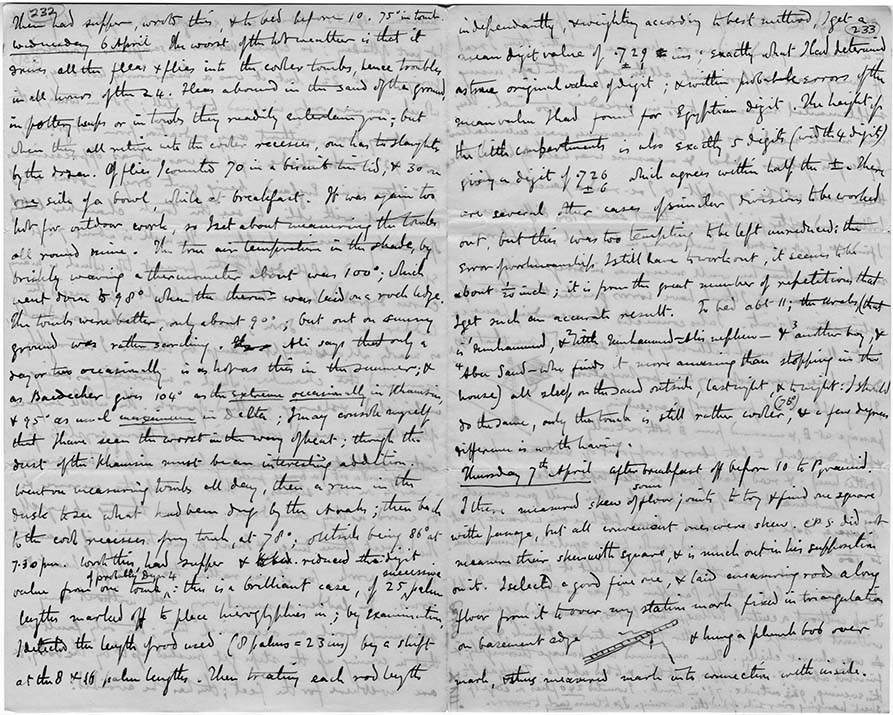 232
Then had supper, wrote this, & to bed before 10. 75° in tomb.
Wednesday 6 April The worst of the hot weather is that it
drives all the fleas & flies into the cooler tombs, hence troubles
in all hours of the 24. Fleas abound in the sand of the ground
in pottery heaps or in tombs they readily entertain you; but
when they all retire into the cooler recesses, one has to slaughter
by the dozen. Of flies I counted 70 in a biscuit tin lid, & 30 on
one side of a bowl, while at breakfast. It was again too
hot for outdoor work, so I set about measuring the tombs
all round mine. The true air temperature in the shade, by
briskly waving a thermometer about was 100°; which
went down to 98° when the therm= was laid on a rock ledge.
The tombs were better, only about 90°; but out on sunny
ground was rather scorching. Ali says that only a
day or two occasionally is as hot as this in the summer; &
as Baedecker gives 104° as the extreme occasionally in Khamsin,
& 95° as usual maximum in Delta; I may console myself
that I have seen the worst in the way of heat; though the
dust of the Khamsin must be an interesting addition,
went on measuring tombs all day, then a run in the
dusk to see what had been dug by the Arabs; then back
to the cool recesses of my tomb, at 78°; outside being 86° at
7.30 p.m. Wrote this, had supper & reduced the digit
value from one tomb of probably Dyn. 4: this is a brilliant case, of 25 successive palm
lengths marked off to place hieroglyphics in; by examination,
I detected the length of rod used (8 palms = 23 ins) by a shift
at the 8 & 16 palm lengths. Then treating each rod length
233
independantly, & weighting according to best method, I get a
mean digit value of .729 ± ins: exactly what I had determined
as true original value of digit; & within probable errors of the
mean value I had found for Egyptian digit. The height of
the little compartments is also exactly 5 digits (width 4 digits)
giving a digit of .726 ± 6 which agrees within half the ±. There
are several other cases of similar divisions to be worked
out, but this was too tempting to be left unreduced: the
error of workmanship I still have to work out, it seems to be
about 1/20 inch; it is from the great number of repetitions that
I get such an accurate result. To bed abt 11; the Arabs (that
is 1 Muhammed, & 2 little Muhammed - Alis nephew - & 3 another boy, &
4 Abu Saud - who finds it more amusing than stopping in the
house) all sleep on the sand outside, last night & tonight: I should
do the same, only the tomb is still rather cooler (78°), & a few degrees
difference is worth having.
Thursday 7th April after breakfast off before 10 to Pyramid.
I there measured skew of some floor joints to try & find one square
with passage, but all convenient ones were skew. C.P.S. did not
measure their skew with square, & is much out in his supposition
on it. I selected a good fine one, & laid measuring rods along
floor from it to over my station mark fixed in triangulation
on basement edge & hung a plumb bob over
mark, & thus measured mark into connection with inside.